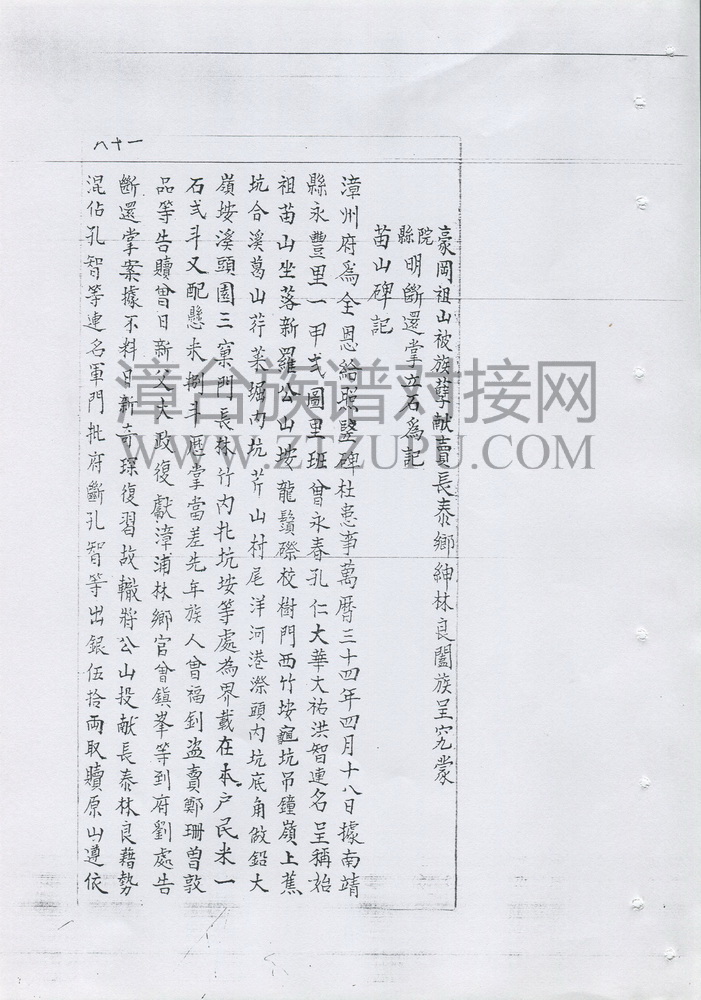 豪岡祖山被族孽献賣長泰鄉紳林良闔族呈究蒙
院
縣
明斷還掌立石爲記
苗山碑記
漳州府爲全恩給照竪碑杜患事萬曆三十四年四月十八日據南靖
縣永豐里一甲弍圖里班曾永春孔仁大華大祐洪智連名呈稱始
祖苗山坐落新羅公山垵龍鬚磜校樹門西竹垵坑吊鐘嶺上蕉
坑合溪葛山荇菜堀内坑芹山村尾洋河港漈頭内坑底角做鉛大
嶺垵溪頭園三窠門長林竹内圠坑垵等處為界載在本户民米一
石弍斗又配懸米捌斗歷掌當差先年族人曾福釗盗賣鄭珊曾敦
品等告贖曾日新父大政復獻漳浦林鄉官曾鎮峯等到府劉處告
斷還掌案據不料日新奇琛復習故轍將公山投献長泰林良藉勢
混佔孔智等連名軍門批府斷孔智等出銀伍拾兩取贖原山遵依
八十一
漳台族谱对接网
WWW.ZTZUPU.COM